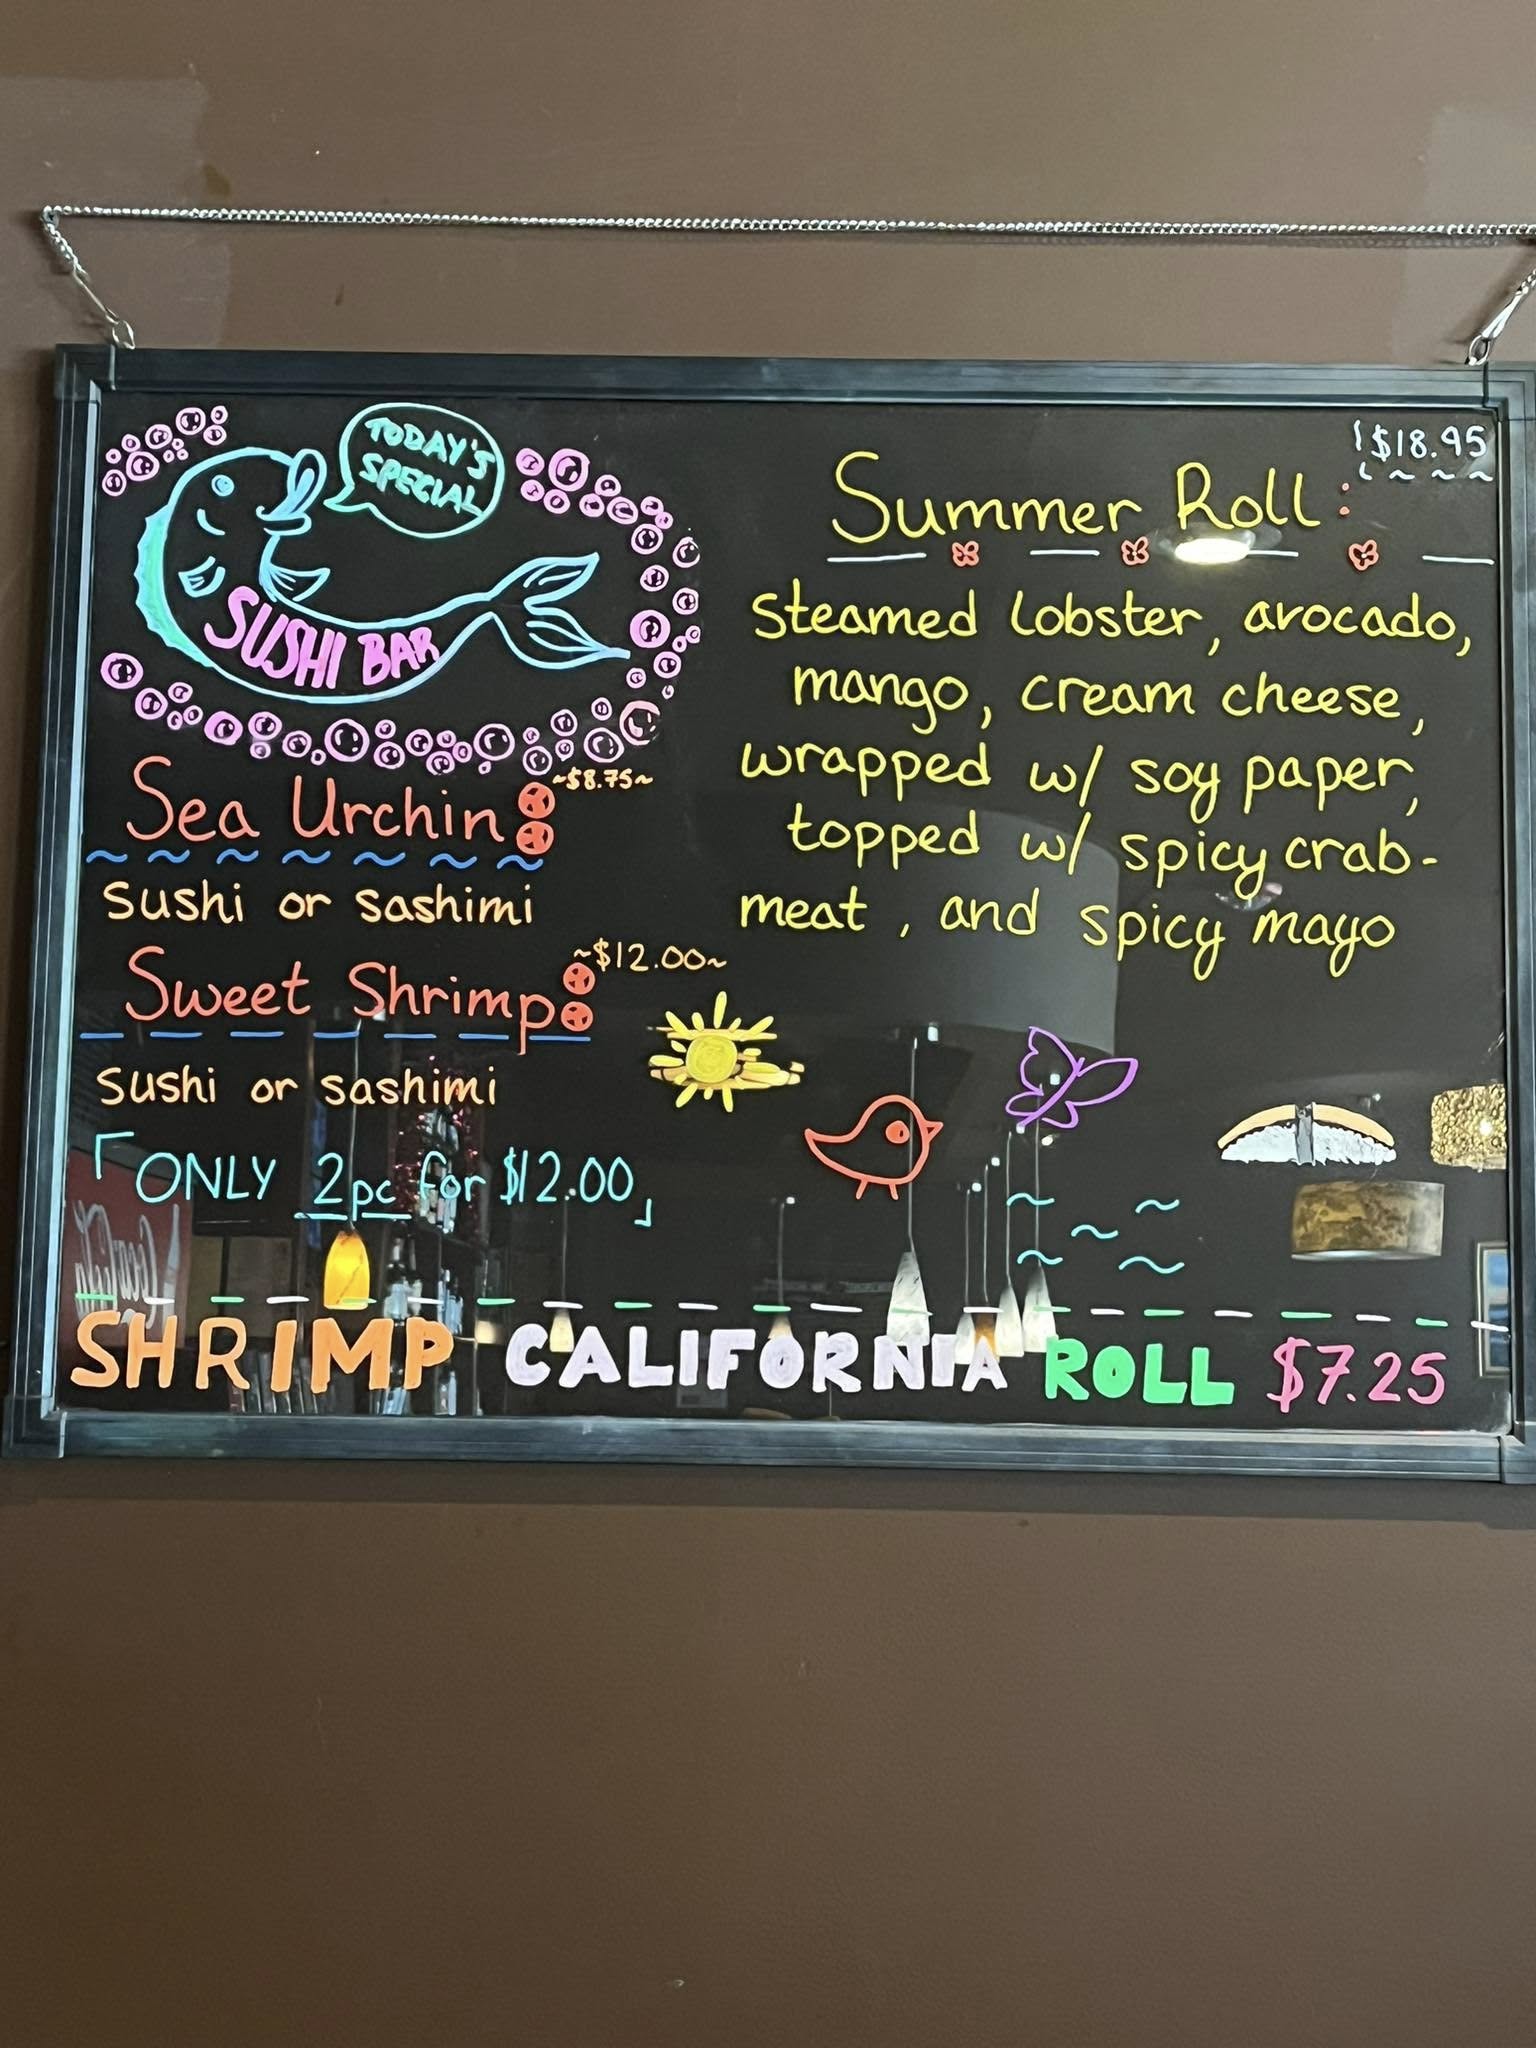 TODAY'S
SPECIAL
SUSHI BAR
Sea Urchin: ~$8.75~
sushi or sashimi
Sweet Shrimp: ~$12.00~
sushi or sashimi
「ONLY 2pc for $12.00」
$18.95
Summer Roll:
steamed lobster, avocado,
mango, cream cheese,
wrapped w/ soy paper,
topped w/ spicy crab-
meat, and spicy mayo
SHRIMP CALIFORNIA ROLL $7.25
Coca-Cola